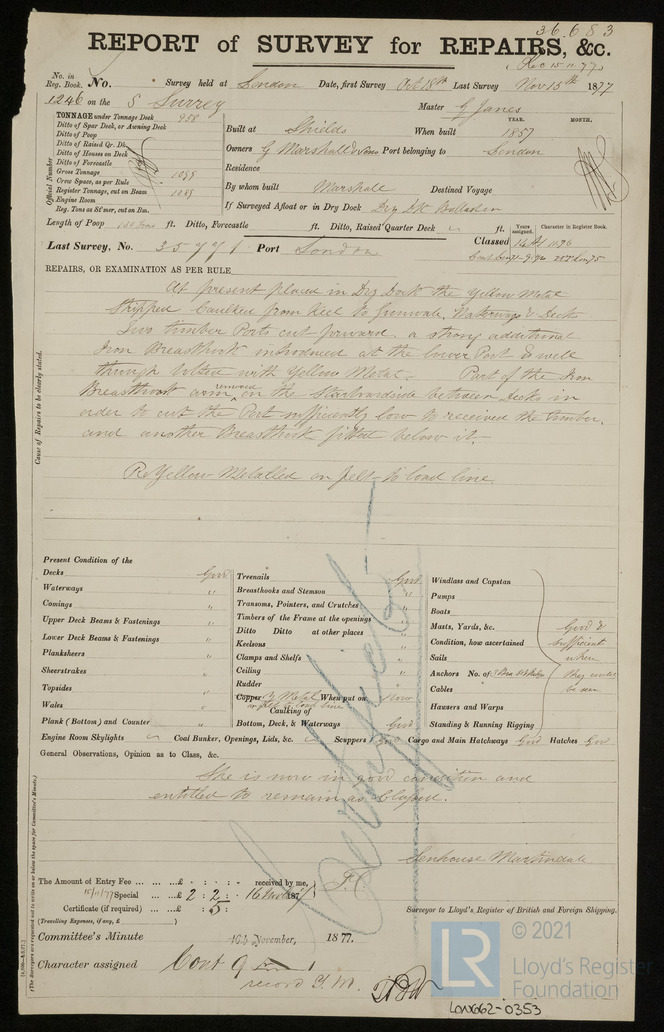 36683
REPORT of SURVEY for REPAIRS, &c.
(Rec 15.11.77)
No. in Reg. Book. No. Survey held at London Date, first Survey Oct 18th Last Survey Nov 15th 1877
1246 on the S Surrey Master G Janes
TONNAGE under Tonnage Deck 958
Ditto of Spar Deck, or Awning Deck
Ditto of Poop
Ditto of Raised Qr. Dk.
Ditto of Houses on Deck
Ditto of Forecastle
Gross Tonnage
Crew Space, as per Rule
Register Tonnage, cut on Beam
Engine Room
Reg. Tons as St'mer, cut on Bm.
Official Number
YEAR. MONTH.
Built at Shields When built 1857
Owners G Marshall & Sons Port belonging to London
Residence
By whom built Marshall Destined Voyage
If Surveyed Afloat or in Dry Dock Dry Dk
Length of Poop ft. Ditto, Forecastle ft. Ditto, Raised Quarter Deck ft.
Years assigned. Character in Register Book.
Last Survey, No. 35771 Port London Classed
REPAIRS, OR EXAMINATION AS PER RULE
Cause of Repairs to be clearly stated.
At present placed in Dry Dock the Yellow Metal
Stripped Caulked from Keel to Gunwale, Waterways & Decks
Two timber Ports cut forward. a strong additional
Iron Breasthook introduced at the lower Port & well
through bolted with Yellow Metal. Part of the Iron
Breasthook arm removed on the Starboard side between Decks in
order to cut the Port sufficiently low to received the timber,
and another Breasthook fitted below it.
Re Yellow Metalled on felt to load line.
Present Condition of the
Decks Good
Waterways "
Comings "
Upper Deck Beams & Fastenings "
Lower Deck Beams & Fastenings "
Planksheers "
Sheerstrakes "
Topsides "
Wales "
Plank (Bottom) and Counter "
Treenails Good
Breasthooks and Stemson "
Transoms, Pointers, and Crutches "
Timbers of the Frame at the openings "
Ditto Ditto at other places "
Keelsons "
Clamps and Shelfs "
Ceiling "
Rudder "
Copper Y Metal When put on now
on felt to load line
Caulking of
Bottom, Deck, & Waterways Good
Windlass and Capstan
Pumps
Boats
Masts, Yards, &c.
Condition, how ascertained
Sails
Anchors No. of
Cables
Hawsers and Warps
Standing & Running Rigging
Good &
sufficient
when
they
be seen
Engine Room Skylights Coal Bunker, Openings, Lids, &c. Scuppers Good Cargo and Main Hatchways Good Hatches Good
General Observations, Opinion as to Class, &c.
She is now in good condition and
entitled to remain as Classed.
Certificate
Senhouse Martindale
The Amount of Entry Fee ... ... £ : : received by me,
15/11/77 Special ... £ 2 : 2 : 16 Nov 1877
Certificate (if required) ... £ : 5 :
(Travelling Expenses, if any, £ )
Surveyor to Lloyd's Register of British and Foreign Shipping.
Committee's Minute 16th November, 1877.
Character assigned Cont 9
record Y.M.
(The Surveyors are requested not to write on or below the space for Committee's Minute.)
© 2021
LR
Lloyd's Register
Foundation
LON662-0353